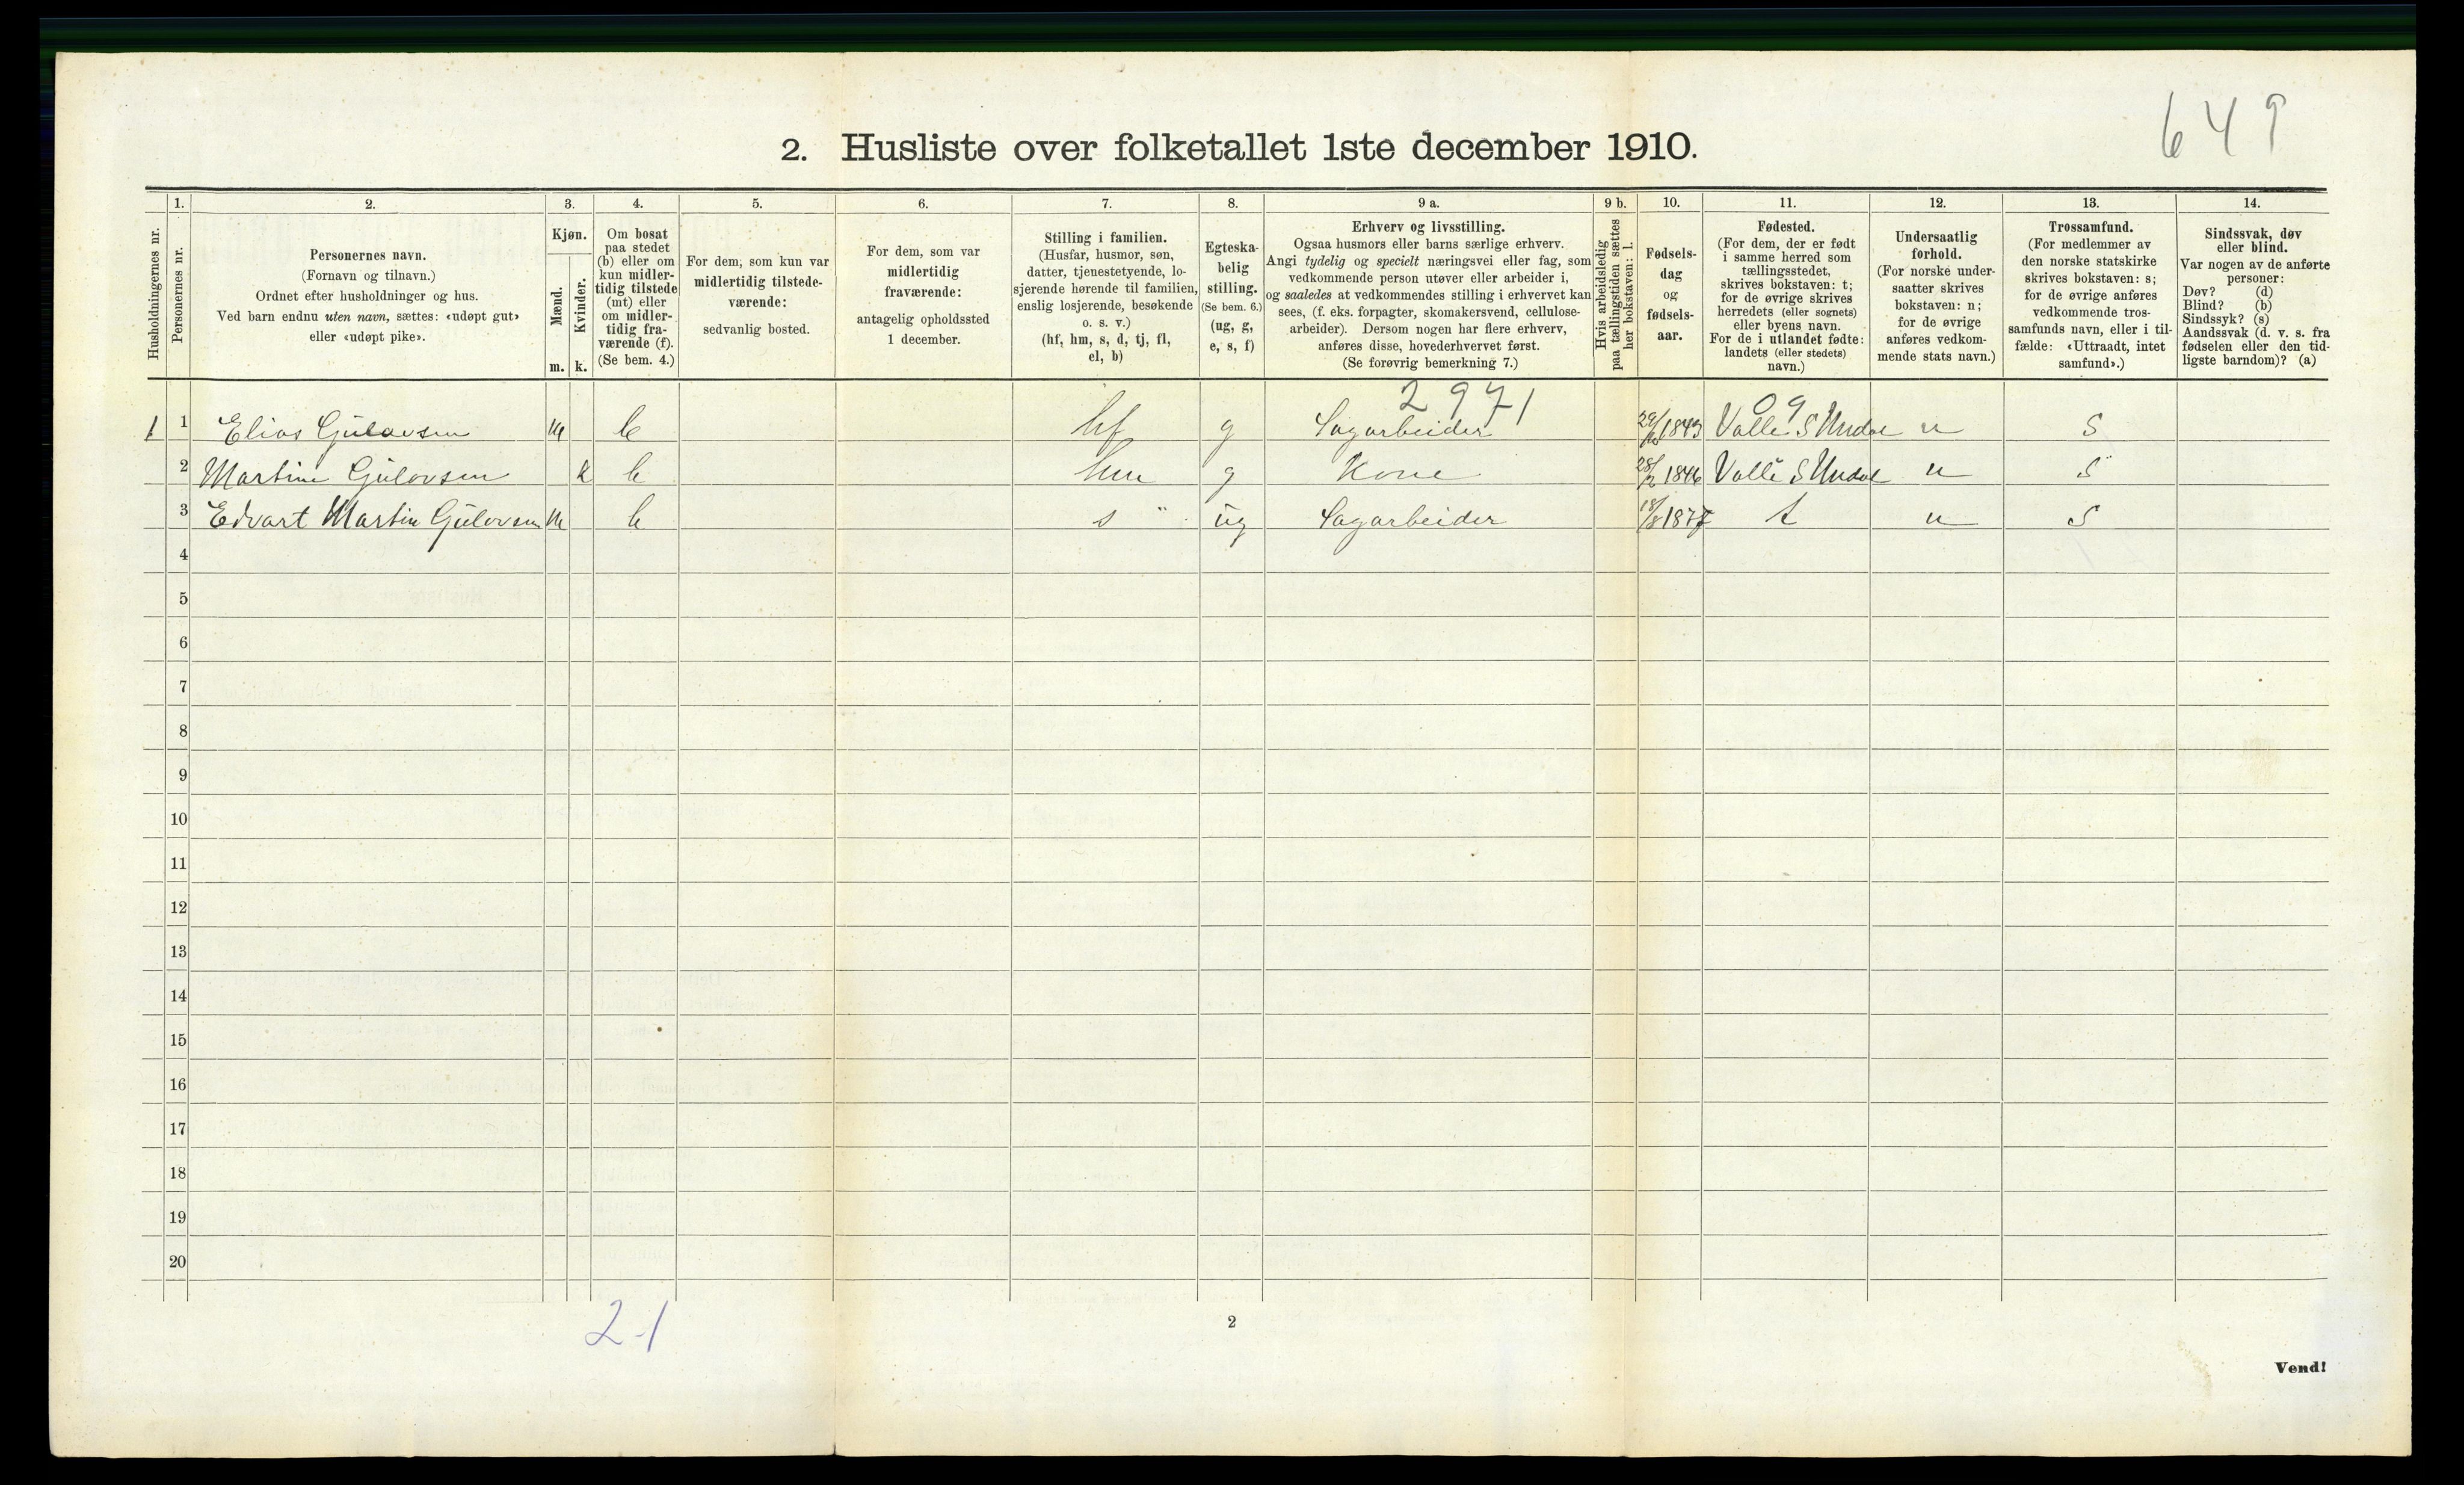 649
2. Husliste over folketallet 1ste december 1910.
Husholdningernes nr.
1. Personernes nr.
2. Personernes navn.
(Fornavn og tilnavn.)
Ordnet efter husholdninger og hus.
Ved barn endnu uten navn, sættes: «udøpt gut»
eller «udøpt pike».
3. Kjøn.
Mænd. m.
Kvinder. k.
4. Om bosat
paa stedet
(b) eller om
kun midler-
tidig tilstede
(mt) eller
om midler-
tidig fra-
værende (f).
(Se bem. 4.)
5. For dem, som kun var
midlertidig tilstede-
værende:
sedvanlig bosted.
6. For dem, som var
midlertidig
fraværende:
antagelig opholdssted
1 december.
7. Stilling i familien.
(Husfar, husmor, søn,
datter, tjenestetyende, lo-
sjerende hørende til familien,
enslig losjerende, besøkende
o. s. v.)
(hf, hm, s, d, tj, fl,
el, b)
8. Egteska-
belig
stilling.
(Se bem. 6.)
(ug, g,
e, s, f)
9 a. Erhverv og livsstilling.
Ogsaa husmors eller barns særlige erhverv.
Angi tydelig og specielt næringsvei eller fag, som
vedkommende person utøver eller arbeider i,
og saaledes at vedkommendes stilling i erhvervet kan
sees, (f. eks. forpagter, skomakersvend, cellulose-
arbeider). Dersom nogen har flere erhverv,
anføres disse, hovederhvervet først.
(Se forøvrig bemerkning 7.)
9 b. Hvis arbeidsledig
paa tællingstiden sættes
her bokstaven: l.
10. Fødsels-
dag
og
fødsels-
aar.
11. Fødested.
(For dem, der er født
i samme herred som
tællingsstedet,
skrives bokstaven: t;
for de øvrige skrives
herredets (eller sognets)
eller byens navn.
For de i utlandet fødte:
landets (eller stedets)
navn.)
12. Undersaatlig
forhold.
(For norske under-
saatter skrives
bokstaven: n;
for de øvrige
anføres vedkom-
mende stats navn.)
13. Trossamfund.
(For medlemmer av
den norske statskirke
skrives bokstaven: s;
for de øvrige anføres
vedkommende tros-
samfunds navn, eller i til-
fælde: «Uttraadt, intet
samfund».)
14. Sindssvak, døv
eller blind.
Var nogen av de anførte
personer:
Døv? (d)
Blind? (b)
Sindssyk? (s)
Aandssvak (d. v. s. fra
fødselen eller den tid-
ligste barndom)? (a)
2971 09
1 1 Elias Gulovsen m b hf g Sagarbeider 1843 Valle S Undal n s
2 Martine Gulovsen k b hm g Kone 1846 Valle S Undal n s
3 Edvart Martin Gulovsen m b s ug Sagarbeider 18/8 1877 t n s
4
5
6
7
8
9
10
11
12
13
14
15
16
17
18
19
20
2-1
2
Vend!